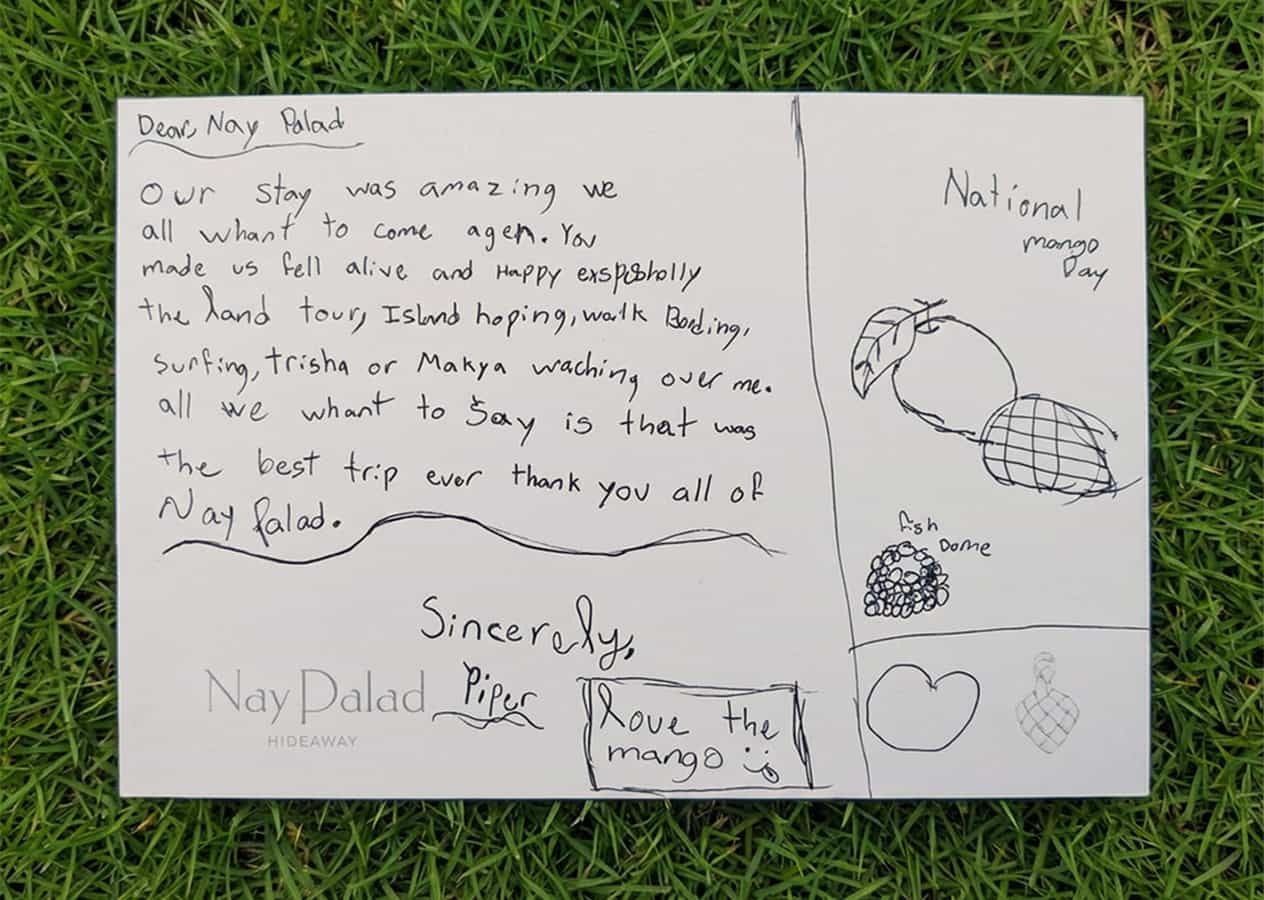 Dear, Nay Palad
Our stay was amazing we
all whant to come agen. You
made us fell alive and Happy
the land tour, Island hoping, walk Bording,
surfing, trisha or Makya waching over me.
all we whant to Say is that was
the best trip ever thank you all of
Nay Palad.
Sincerely,
Piper
Nay Palad
HIDEAWAY
Love the
mango
National
mango
Day
fish
Dome